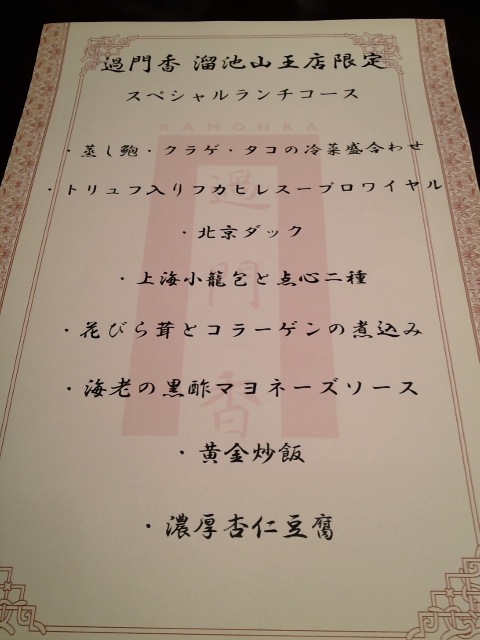 過門香 溜池山王店限定
スペシャルランチコース
KAMONKA
・蒸し鮑・クラゲ・タコの冷菜盛合わせ
・トリュフ入りフカヒレスープロワイヤル
・北京ダック
・上海小龍包と点心二種
・花びら茸とコラーゲンの煮込み
・海老の黒酢マヨネーズソース
・黄金炒飯
・濃厚杏仁豆腐
過門香